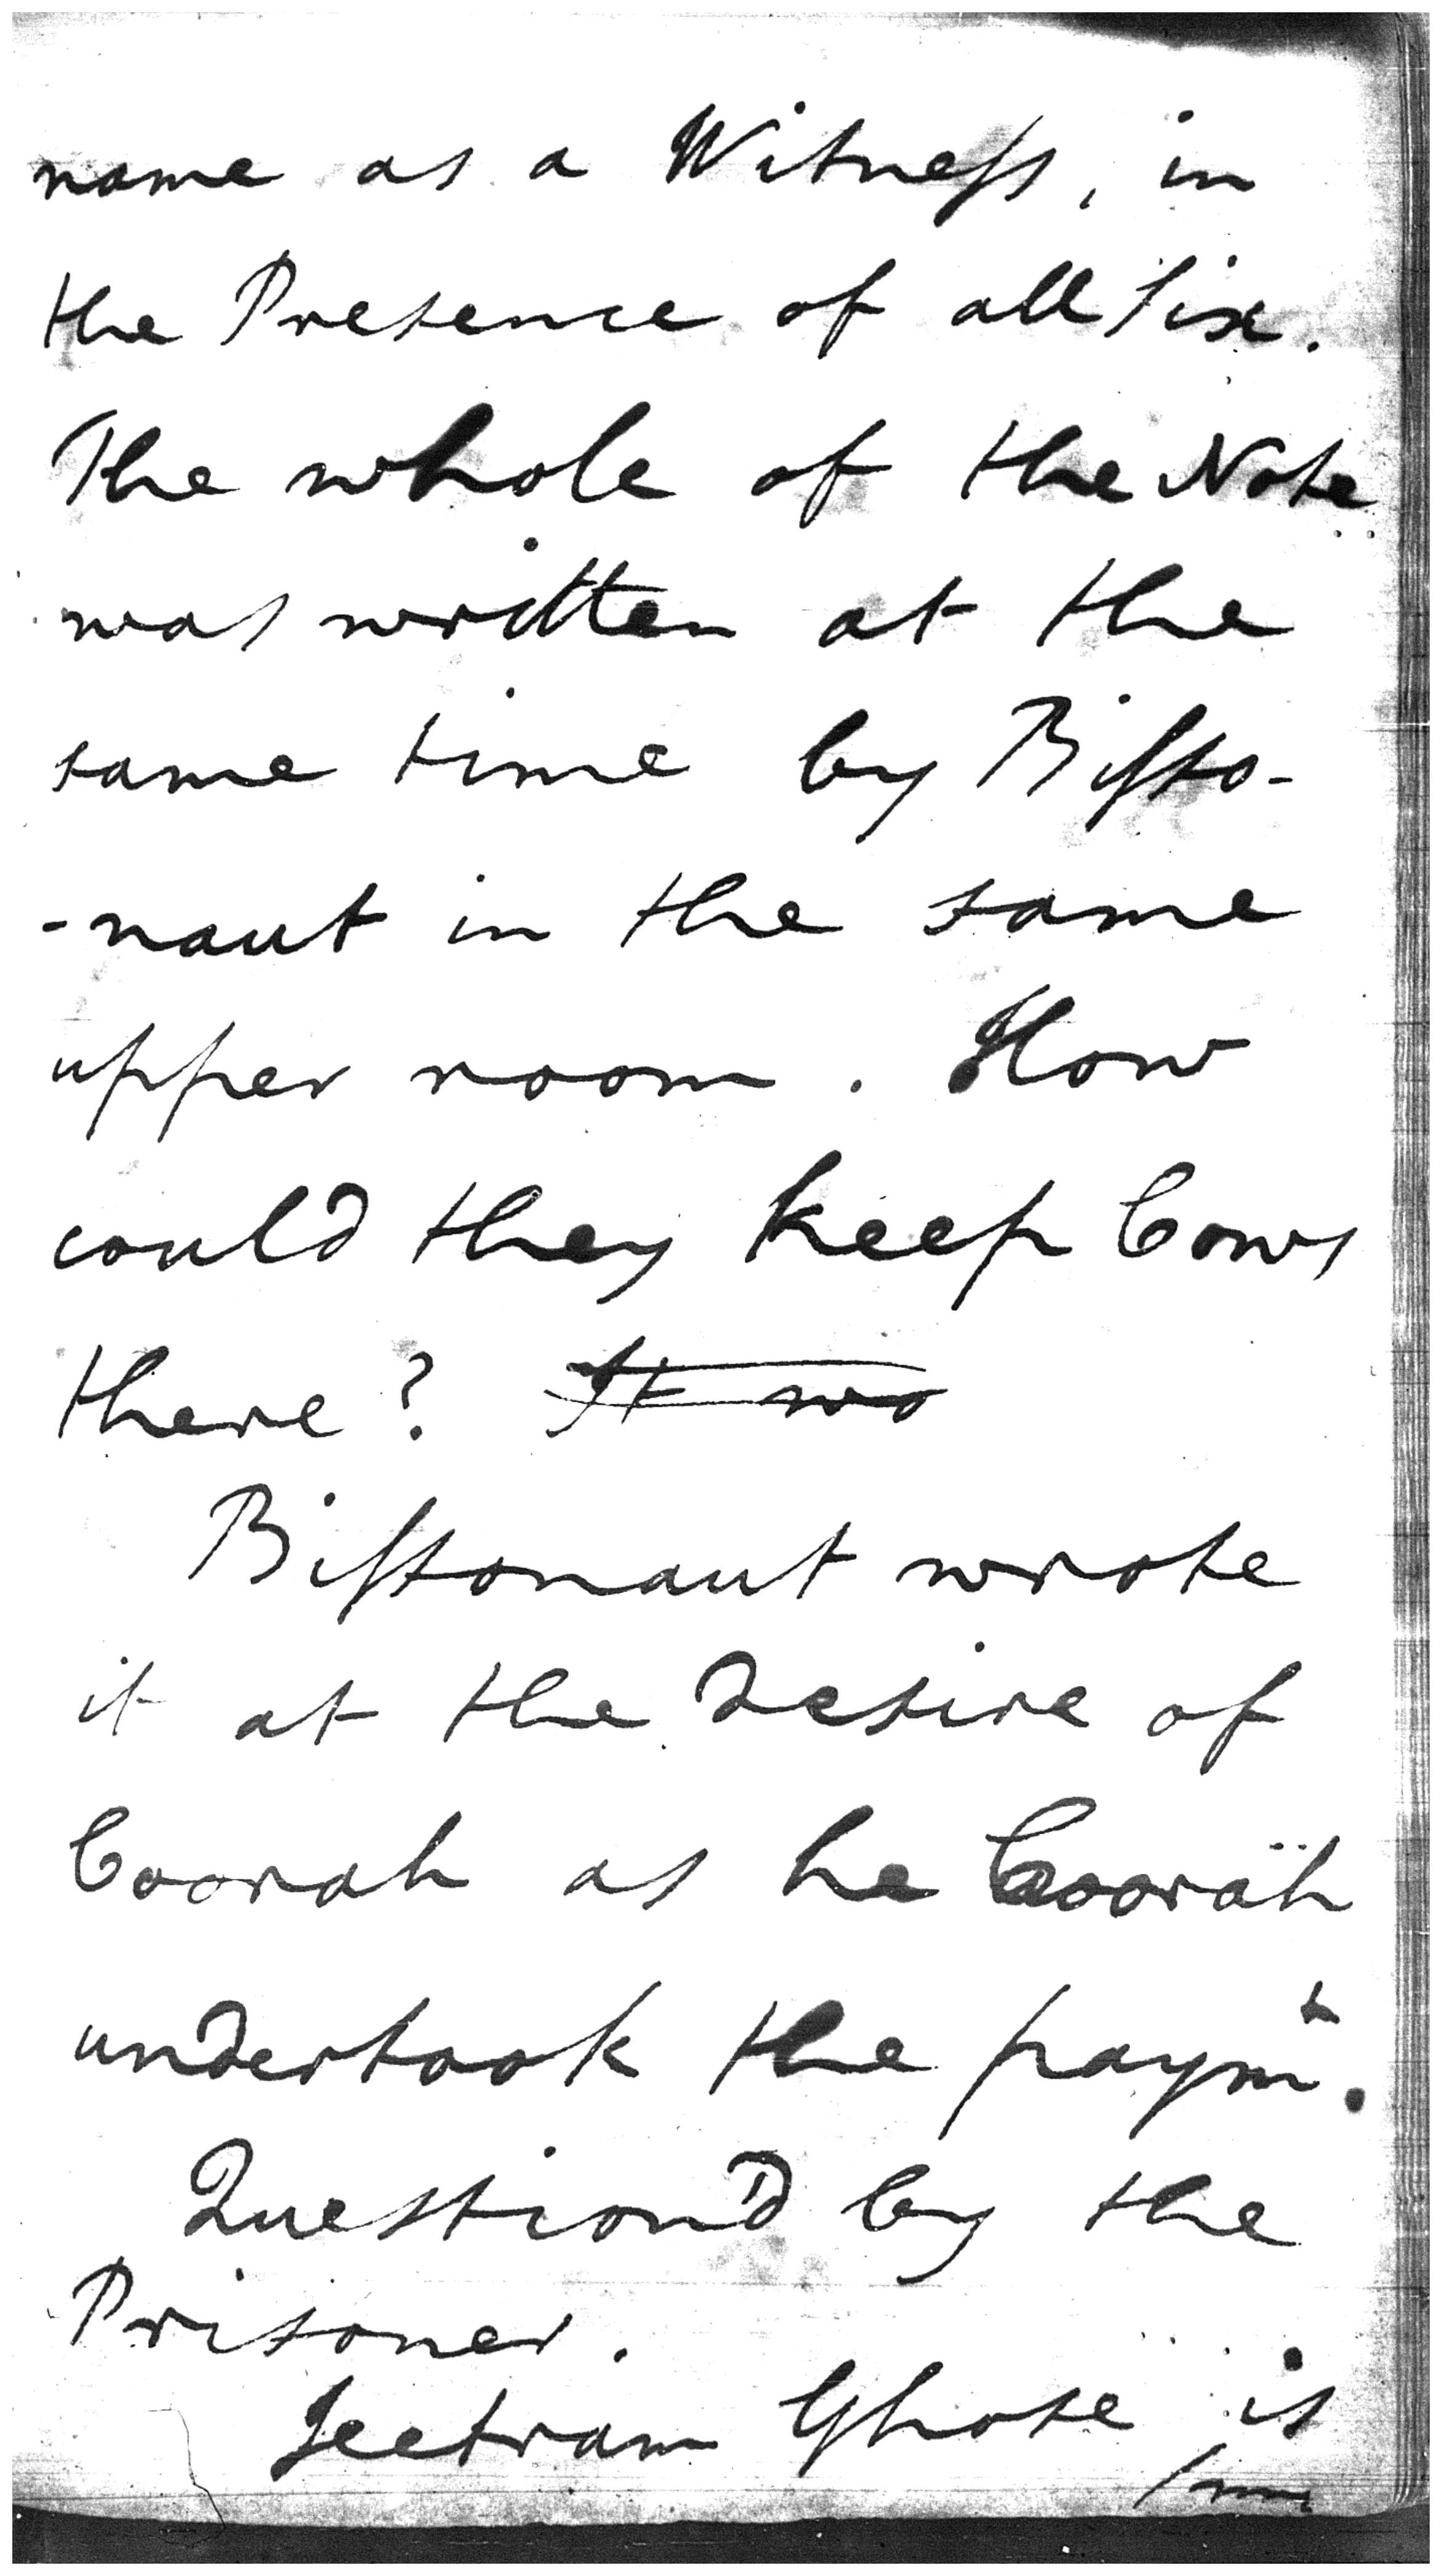 name as a Witness, in
the Presence of all six.
The whole of the Note
was written at the
same time by Bisso-
-naut in the same
upper room. How
could they keep Cows
there? It wa
Bissonaut wrote
it at the desire of
Coorah as he Coorah
undertook the paymt.
Question'd by the
Prisoner.
Jeetram Ghose is